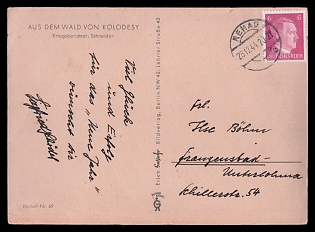 AUS DEM WALD VON KOLODESY
Kriegsberichter: Schneider
Viel Glück
und Erfolg
für das "Neue Jahr"
wünscht Dir
Erich
Bildverlag, Berlin NW 40, Lehrter Straße
REHAU
6
6
Frl.
Ilse Böhm
Franzensbad-
Unterlohma
Schillerstr. 54